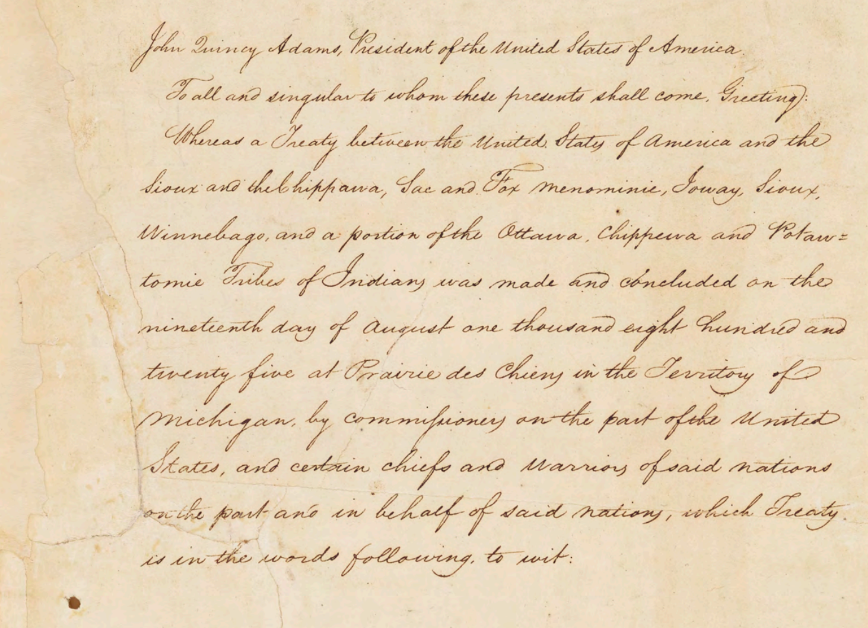 John Quincy Adams, President of the United States of America.
To all and singular to whom these presents shall come, Greeting:
Whereas a Treaty between the United States of America and the
Sioux and the Chippawa, Sac and Fox Menominie, Ioway, Sioux,
Winnebago, and a portion of the Ottawa, Chippewa and Potaw=
tomie Tribes of Indians was made and concluded on the
nineteenth day of August one thousand eight hundred and
twenty five at Prairie des Chiens in the Territory of
Michigan, by commissioners on the part of the United
States, and certain chiefs and Warriors of said nations
on the part and in behalf of said nations, which Treaty
is in the words following, to wit: